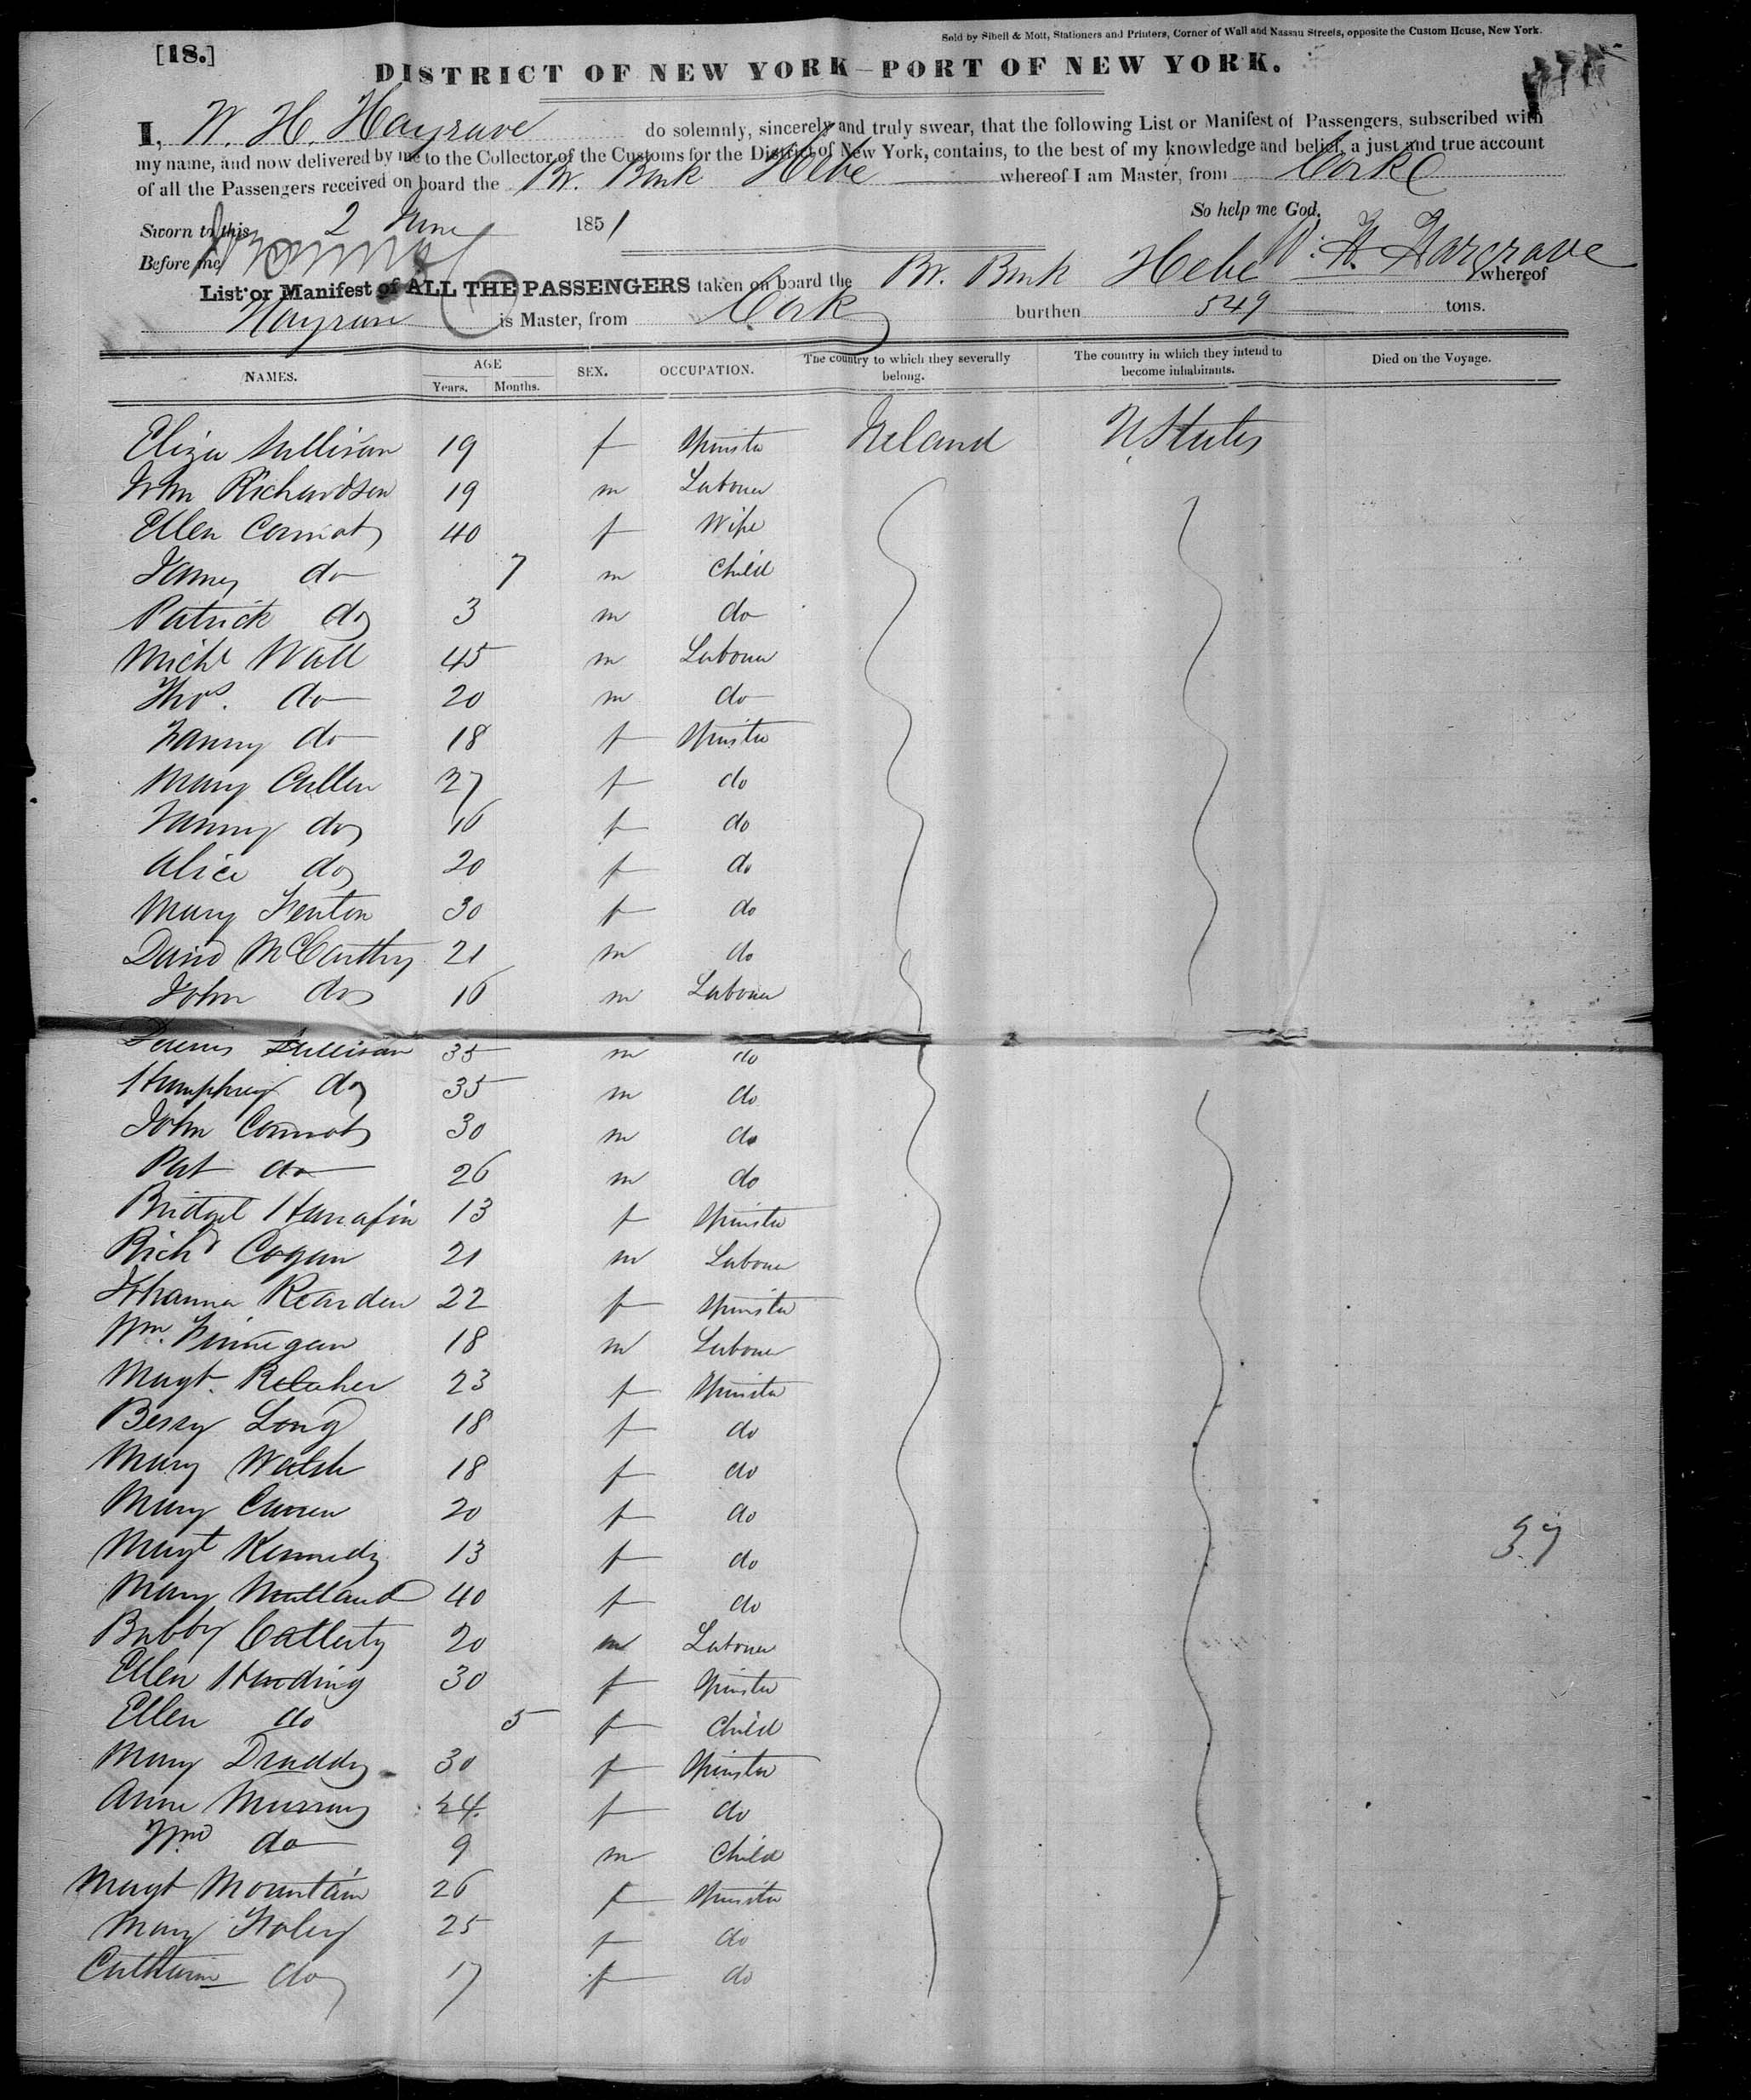 [18.]
Sold by Sibell & Mott, Stationers and Printers, Corner of Wall and Nassau Streets, opposite the Custom House, New York.
DISTRICT OF NEW YORK—PORT OF NEW YORK.
I, W. H. Hargrave do solemnly, sincerely and truly swear, that the following List or Manifest of Passengers, subscribed with
my name, and now delivered by me to the Collector of the Customs for the District of New York, contains, to the best of my knowledge and belief, a just and true account
of all the Passengers received on board the Br. Bark Hebe whereof I am Master, from Cork
So help me God.
Sworn to this 2 June 1851
Before me W. H. Hargrave
List or Manifest of ALL THE PASSENGERS taken on board the Br. Bark Hebe whereof
Hargrave is Master, from Cork burthen 549 tons.
NAMES. AGE Years. Months. SEX. OCCUPATION. The country to which they severally belong. The country in which they intend to become inhabitants. Died on the Voyage.
Eliza Sullivan 19 f Spinster Ireland U. States
John Richardson 19 m Labourer
Ellen 40 f Wife
James do 7 m Child
Patrick do 3 m do
Michl Wall 45 m Labourer
Thos. do 20 m do
Fanny do 18 f Spinster
Mary Cullen 27 f do
Fanny do 16 f do
Alice do 20 f do
Mary Fenton 30 f do
David McCarthy 21 m do
John do 16 m Labourer
Dennis Sullivan 35 m do
Humphrey do 35 m do
John 30 m do
Pat do 26 m do
Bridget Hanafin 13 f Spinster
Richd Cogan 21 m Labourer
Johanna Rearden 22 f Spinster
Wm. Finnegan 18 m Labourer
Magt. 23 f Spinster
Bessy Long 18 f do
Mary Walsh 18 f do
Mary 20 f do
Magt Kennedy 13 f do
Mary 40 f do
20 m Labourer
Ellen Harding 30 f Spinster
Ellen do 5 f Child
Mary Draddy 30 f Spinster
Anne Murray 24 f do
Wm do 9 m Child
Magt Mountain 26 f Spinster
Mary Foley 25 f do
Catharine do 17 f do
37